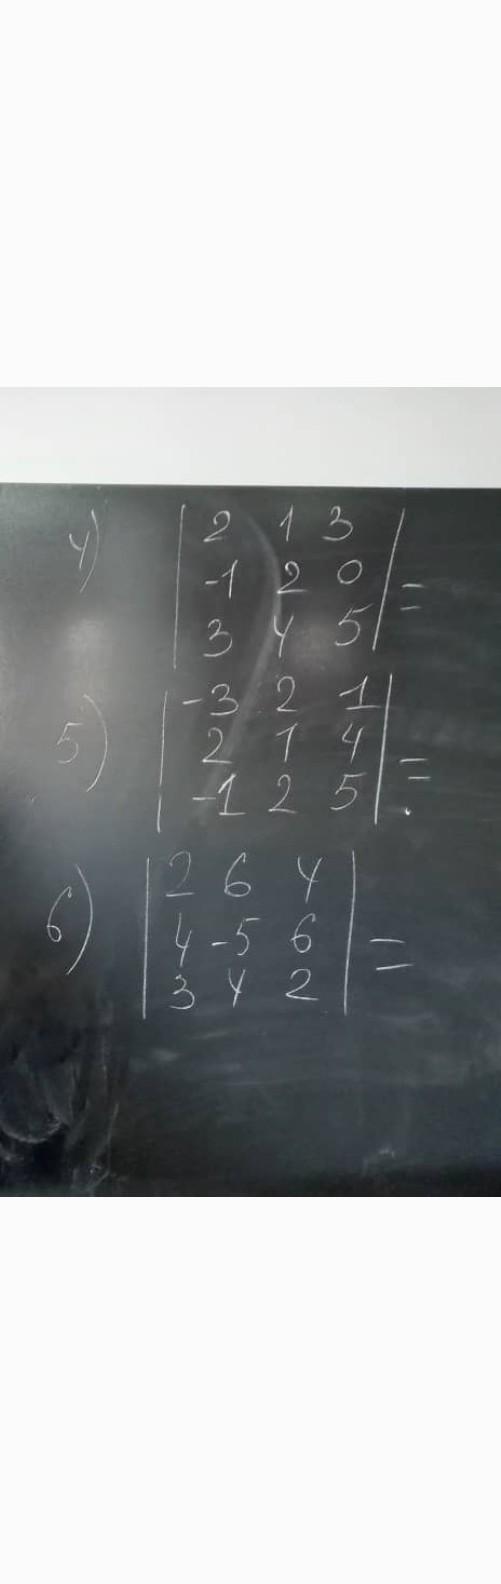 4) | 2 1 3 |
| -1 2 0 | =
| 3 4 5 |
5) | -3 2 1 |
| 2 1 4 | =
| -1 2 5 | .
6) | 2 6 4 |
| 4 -5 6 | =
| 3 4 2 |